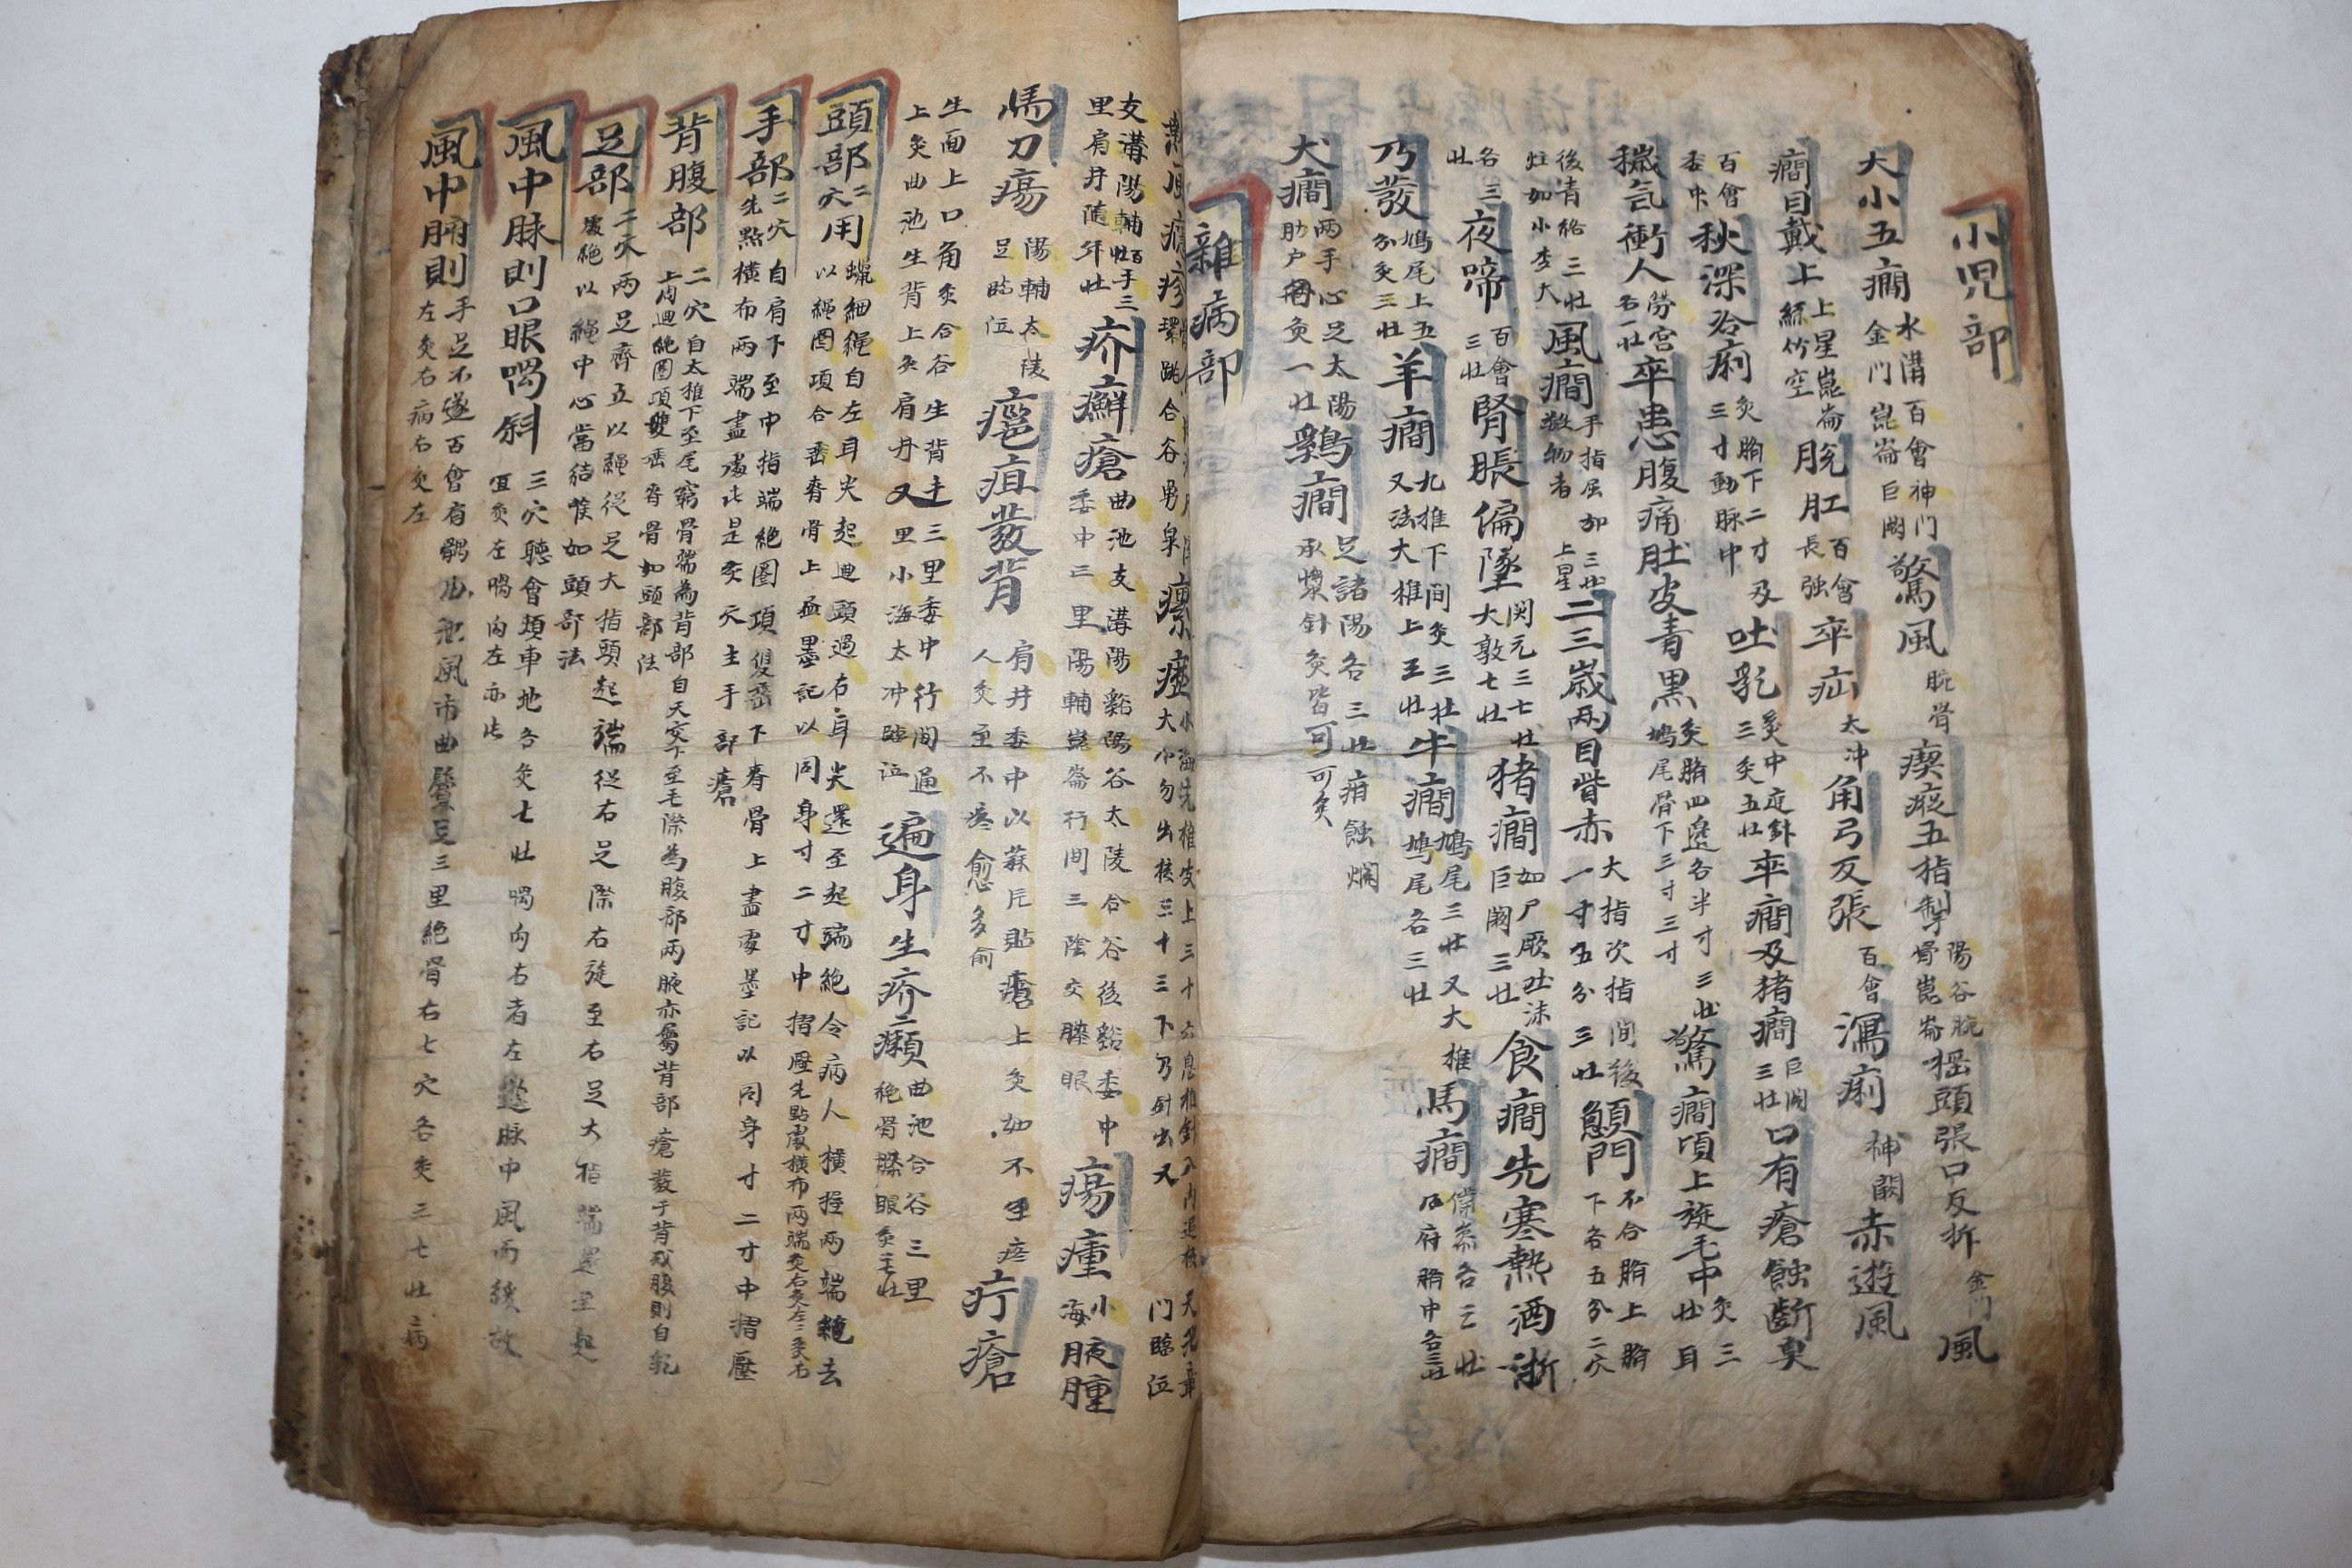 小児部
大小五癎 水溝百會神門金門崑崙巨闕 驚風 腕骨 瘈瘲五指掣 陽谷腕骨崑崙 揺頭張口反折 金門 風
癎目戴上 上星崑崙絲竹空 脱肛 百會長強 卒疝 太冲 角弓反張 百會 瀉痢 神闕 赤遊風
百會委中 秋深冷痢 灸臍下二寸及三寸動脉中 吐乳 灸中庭針三灸五壮 卒癎及猪癎 巨闕三壮 口有瘡蝕斷臭
穢氣衝人 勞宮各一壮 卒患腹痛肚皮青黒 灸臍四邊各半寸三壮鳩尾骨下三寸三寸 驚癎項上旋毛中 灸三壮耳
後青絡三壮炷如小麥大 風癎 手指屈如數物者上星三壮 二三歳兩目眥赤 大指次指間後一寸五分三壮 顖門 不合臍上臍下各五分二穴
各三壮 夜啼 百會三壮 腎脹偏墜 関元三七壮大敦七壮 猪癎 如尸厥吐沫巨闕三壮 食癎先寒熱洒淅
乃發 鳩尾上五分灸三壮 羊癎 九椎下間灸三壮又法大椎上三壮 牛癎 鳩尾三壮又大椎鳩尾各三壮 馬癎 僕參各三壮風府臍中各三壮
犬癎 兩手心足太陽肋户各灸一壮 鷄癎 足諸陽各三壮 承漿針灸皆可可灸 疳蝕爛
雜病部
合谷曲泉 瘰癧 大小勿出核三十三下乃針出又 門臨泣
支溝陽輔百壮手三里肩井随年壮 疥癬瘡 曲池支溝陽谿陽谷太陵合谷後谿委中委中三里陽輔崑崙行間三陰交膝眼 瘍瘇 小海 腋腫
馬刀瘍 陽輔太陵足臨泣 瘢疽發背 肩井委中以蒜片貼瘡上灸如不疼人灸至不疼愈多愈 疔瘡
生面上口角灸合谷生背手三里委中行間通上灸曲池生背上灸肩井又里小海太冲臨泣 遍身生疥癩 曲池合谷三里絶骨膝眼灸壮
頭部 二穴用蠟細繩自左耳尖起迴頭過右耳尖還至起端絶令病人横握兩端繩去以繩圏項合垂脊骨上盡墨記以同身寸二寸中摺壓先點處横布兩端灸右灸左左灸右
手部 二穴自肩下至中指端絶圏項雙垂下脊骨上盡處墨記以同身寸二寸中摺壓先點横布兩端盡處此是灸穴主手部瘡
背腹部 二穴自太椎下至尾窮骨端為背部自天突下至毛際為腹部兩腋亦屬背部瘡發于背或腹則自
足部 二穴兩足齊立以繩從足大指頭起端從右足際右旋至右足大指端還至起處絶以繩中心當結喉如頭部法
風中脉則口眼喎斜 三穴聽會頬車地各灸七壮喎向右者左邊脉中風而緩故宜灸左喎向左亦此
風中腑則 手足不遂百會肩髃曲池風市曲鬢足三里絶骨右七穴各灸三七壮病左灸右病右灸左